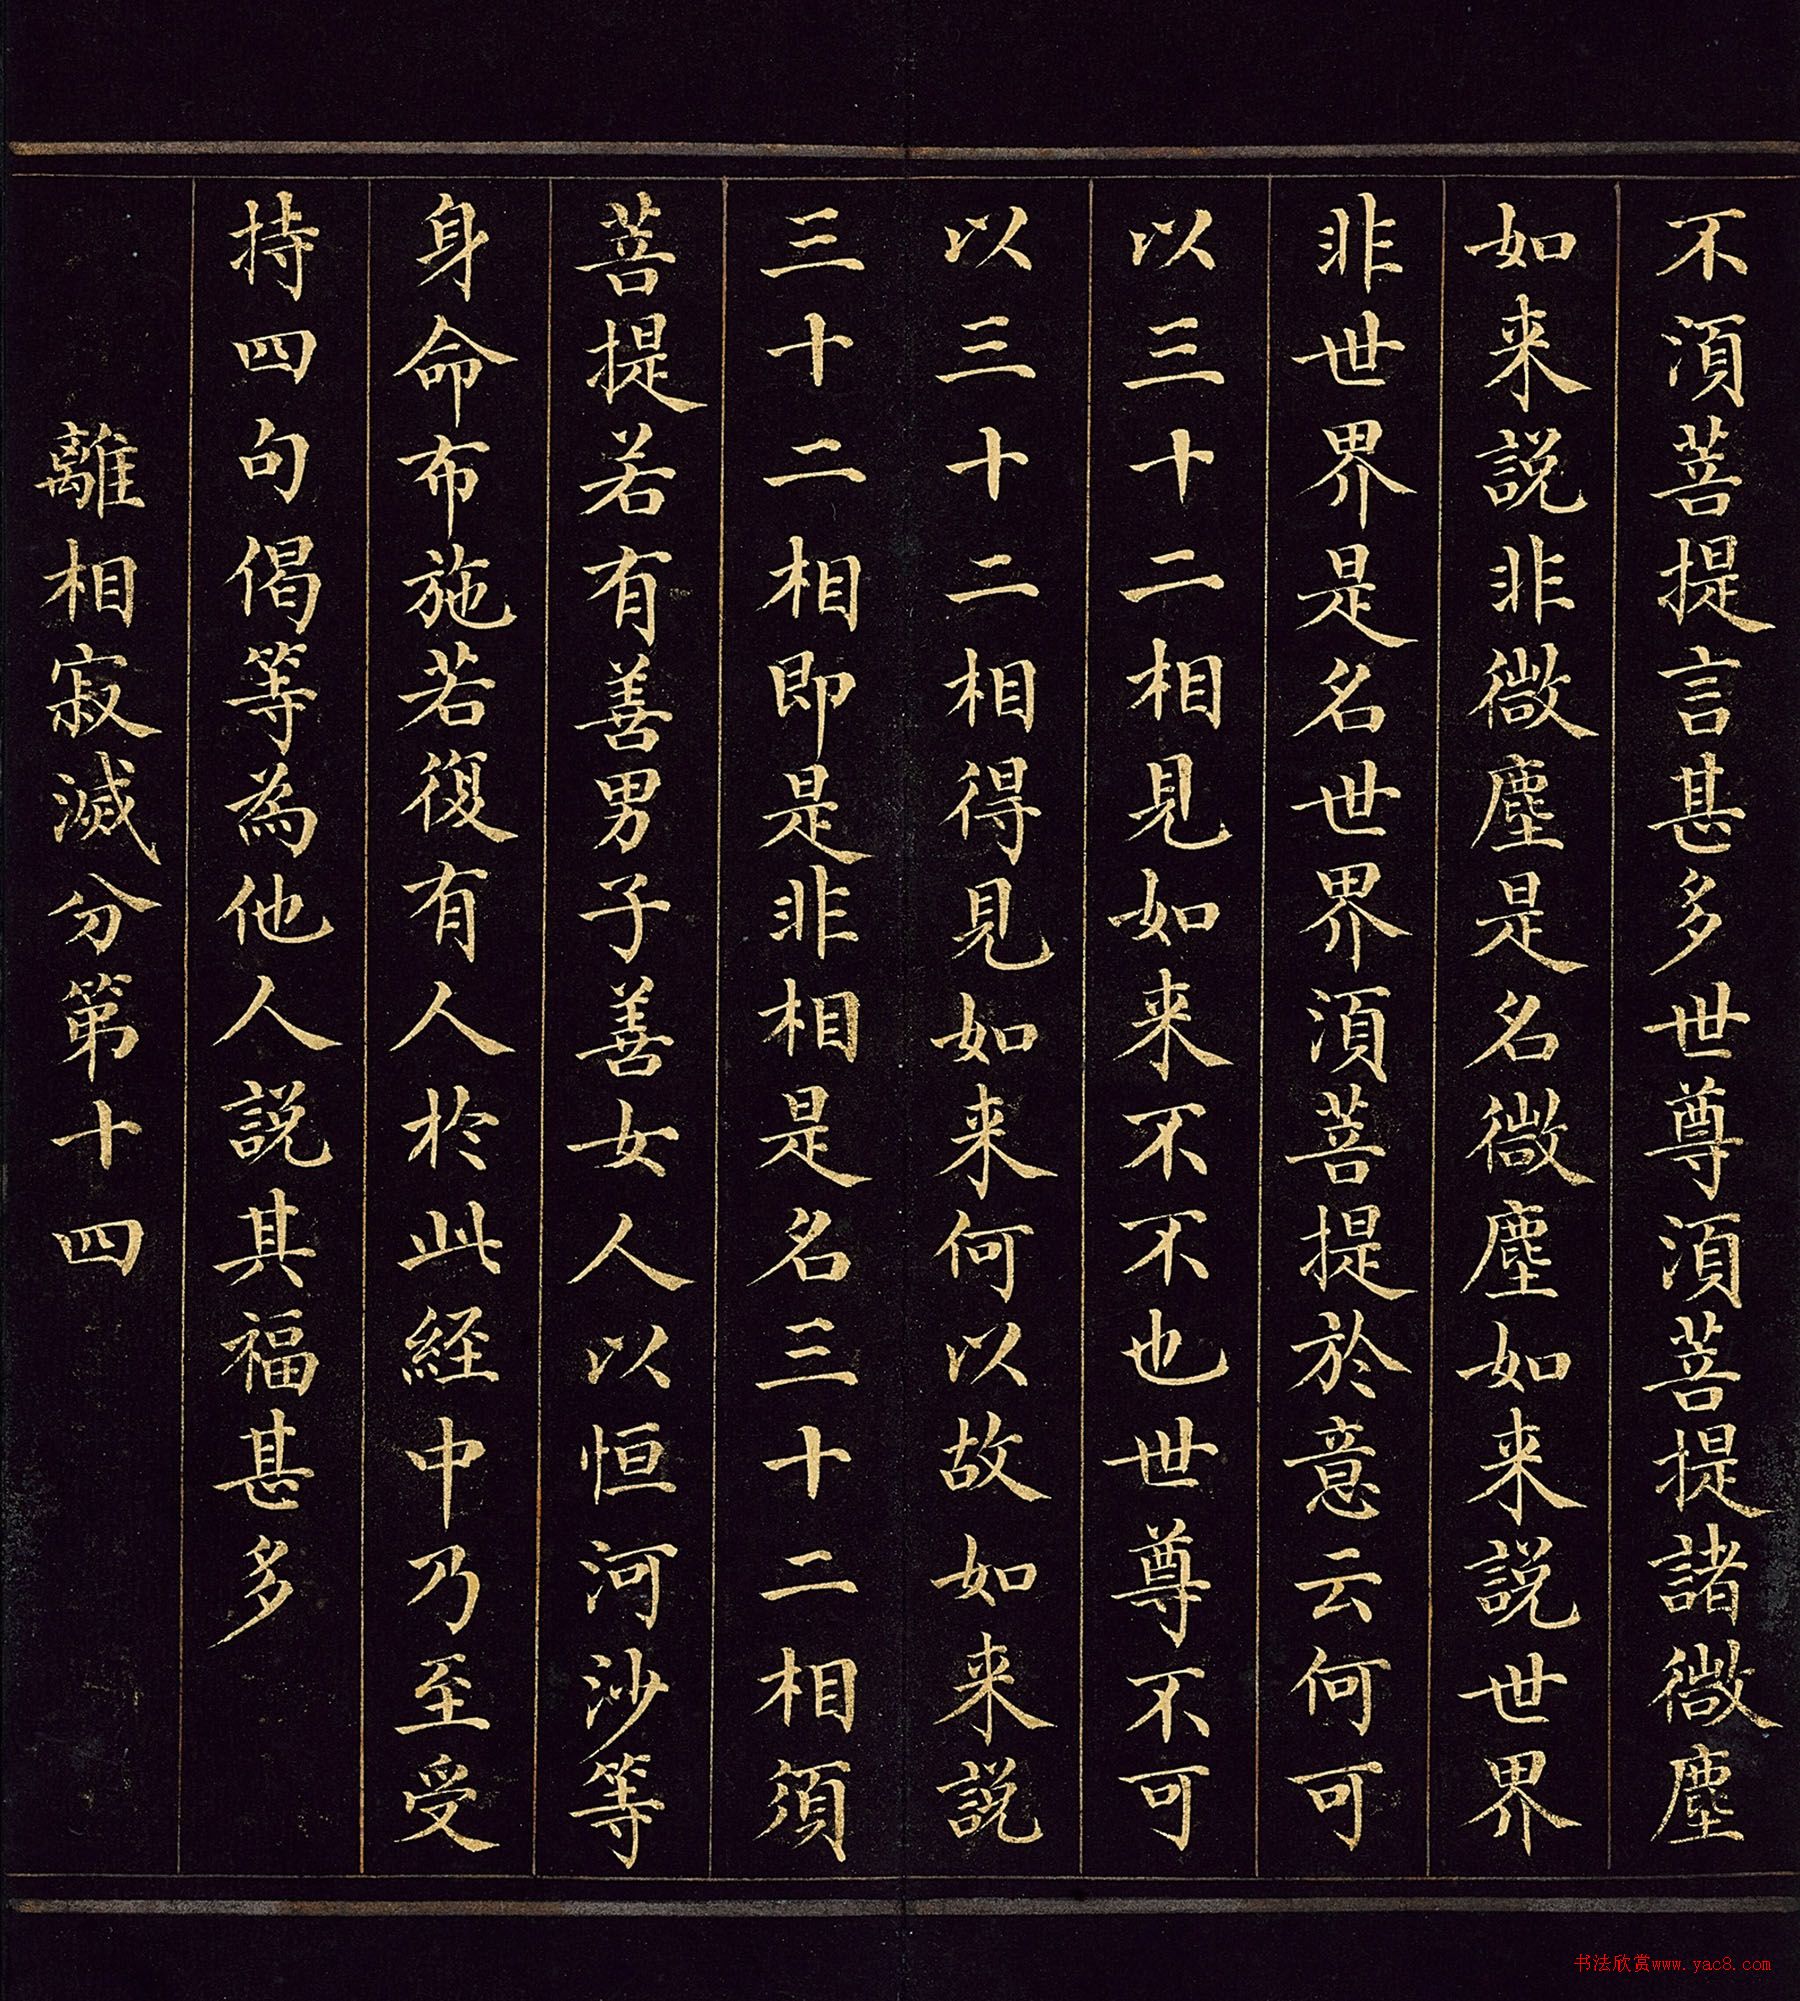 不須菩提言甚多世尊須菩提諸微塵
如来説非微塵是名微塵如来説世界
非世界是名世界須菩提於意云何可
以三十二相見如来不不也世尊不可
以三十二相得見如来何以故如来説
三十二相即是非相是名三十二相須
菩提若有善男子善女人以恒河沙等
身命布施若復有人於此経中乃至受
持四句偈等為他人説其福甚多
離相寂滅分第十四
书法欣赏www.yac8.com